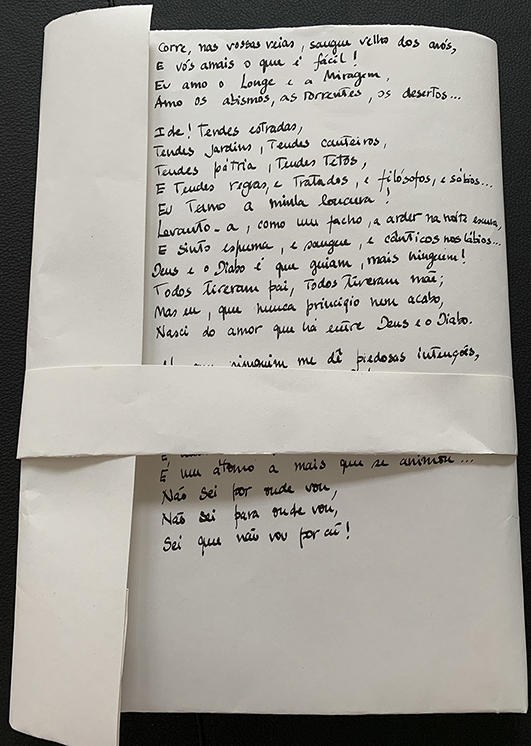 Corre, nas vossas veias, sangue velho dos avós,
E vós amais o que é fácil!
Eu amo o Longe e a Miragem,
Amo os abismos, as torrentes, os desertos...
Ide! Tendes estradas,
Tendes jardins, Tendes canteiros,
Tendes pátria, Tendes Tetos,
E Tendes regras, e Tratados, e filósofos, e sábios...
Eu Tenho a minha loucura!
Levanto-a, como um facho, a arder na noite escura,
E sinto espuma, e sangue, e cânticos nos lábios...
Deus e o Diabo é que guiam, mais ninguém!
Todos tiveram pai, Todos tiveram mãe;
Mas eu, que nunca principio nem acabo,
Nasci do amor que há entre Deus e o Diabo.
que ninguém me dê piedosas intenções,
É um átomo a mais que se animou...
Não sei por onde vou,
Não sei para onde vou,
Sei que não vou por aí!